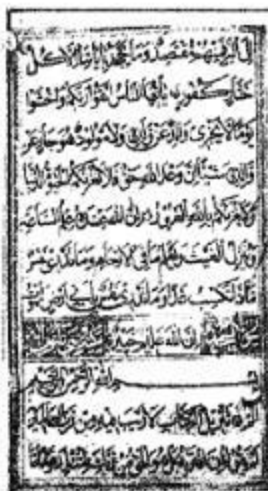 إلى البر فمنهم مقتصد وما يجحد بآياتنا إلا كل
ختار كفور يا أيها الناس اتقوا ربكم واخشوا
يوما لا يجزي والد عن ولده ولا مولود هو جاز عن
والده شيئا إن وعد الله حق فلا تغرنكم الحيوة الدنيا
ولا يغرنكم بالله الغرور إن الله عنده علم الساعة
وينزل الغيث ويعلم ما في الأرحام وما تدري نفس
ماذا تكسب غدا وما تدري نفس بأي أرض تموت
إن الله عليم خبير
بسم الله الرحمن الرحيم
الم تنزيل الكتاب لا ريب فيه من رب العالمين
أم يقولون افتراه بل هو الحق من ربك لتنذر قوما ما